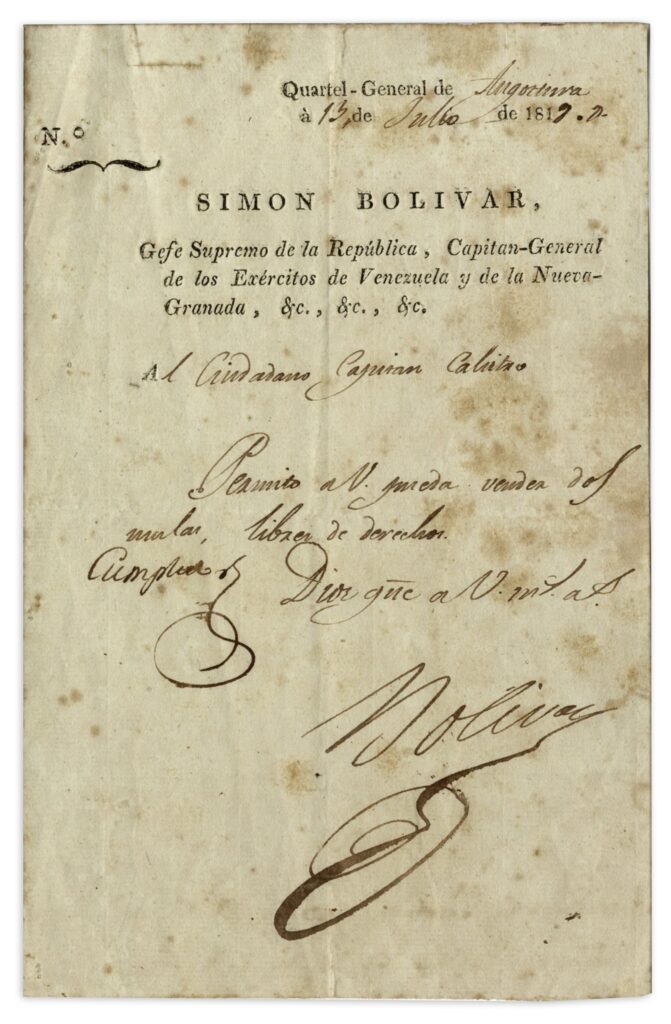 Quartel-General de Angostura
à 13, de Julio de 181
N.º
SIMON BOLIVAR,
Gefe Supremo de la República, Capitan-General
de los Exércitos de Venezuela y de la Nueva-
Granada, &c., &c., &c.
Al Ciudadano Capitan
Permito a V. pueda vender dos
mulas, libres de derechos.
Dios gũe a V. m.s a.s
Bolivar